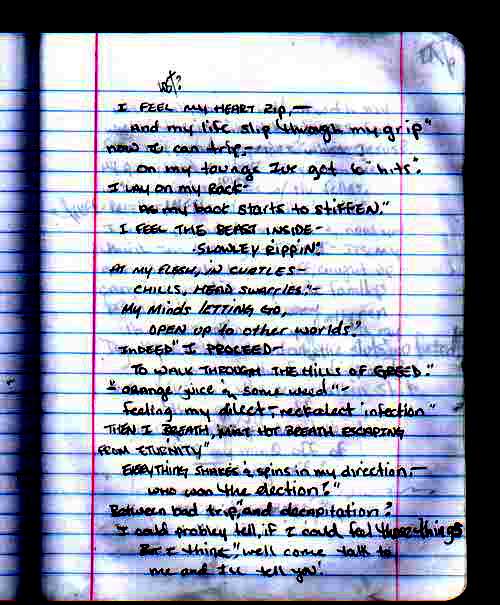 wt?
I FEEL MY HEART Zip,—
And my life slip "through my grip"
now I can trip,-
on my tounge I've got 6 "hits".
I LAY ON MY RACK-
AS my back starts to stiffen."
I FEEL THE BEAST INSIDE-
SLOWLEY RIPPIN."
AT MY FLESH, IN CURTLES-
CHILLS, HEAD SWARLES."-
My Minds LETTING GO,
OPEN UP to other worlds"
INDEED" I PROCEED-
TO WALK THROUGH THE HILLS OF GREED."
"orange juice & some weed"-
feeling my dilect, reckalect infection"
THEN I BREATH, HOT BREATH ESCAPING
FROM ETURNITY"
EVERYTHING SHAKES & spins in my direction.—
who won the election?"
Between bad trip, and decapitation?
I could probley tell, if I could feel these things
But I think", well come talk to
me and I'll tell you!